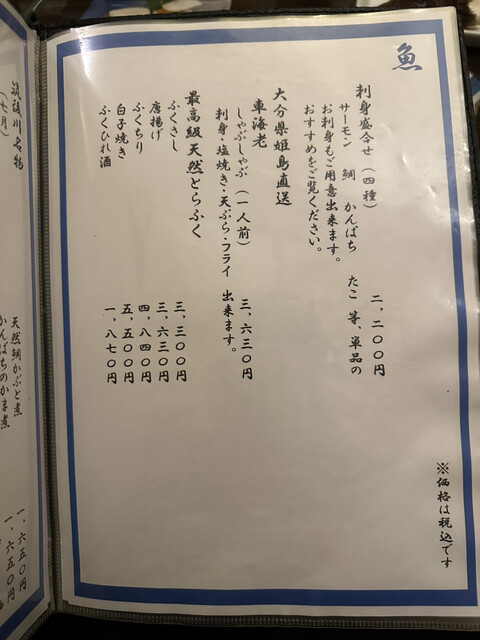 魚
刺身盛合せ（四種） 二，二〇〇円
サーモン 鯛 かんぱち たこ 等、単品の
お刺身もご用意出来ます。
おすすめをご覧ください。
大分県姫島直送
車海老
しゃぶしゃぶ（一人前） 三，六三〇円
刺身・塩焼き・天ぷら・フライ 出来ます。
最高級天然とらふく
ふくさし 三，三〇〇円
唐揚げ 三，六三〇円
ふくちり 四，八四〇円
白子焼き 五，五〇〇円
ふくひれ酒 一，八七〇円
※価格は税込です
（七月）
天然鯛かぶと煮 一，六五〇円
かんぱちのかま煮 一，六五〇円